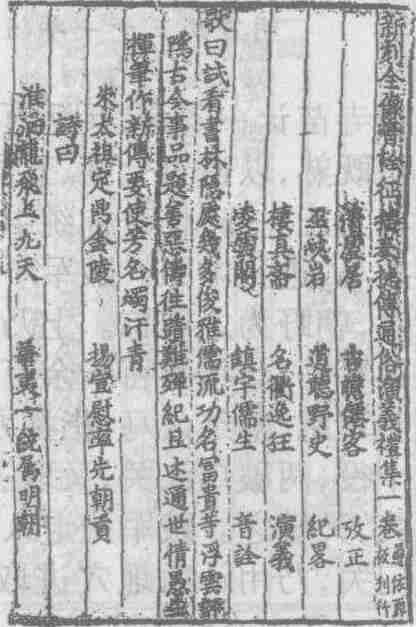 新刻全像音詮征播奏捷傳通俗演義禮集一卷
清虛居 吉瞻僊客 攷正
巫峽岩 道聽野史 紀畧
棲真齋 名衢逸狂 演義
凌雲閣 鎮宇儒生 音詮
歌曰試看書林隱處幾多俊雅儒流功名富貴等浮雲評
隲古今事品題善惡儔往牒難殫紀且述通世情愚
揮筆作新傳要使芳名燭汗青
朱太祖定鼎金陵 楊宣慰率先朝貢
詩曰
淮泗龍飛上九天 華夷一統属明朝